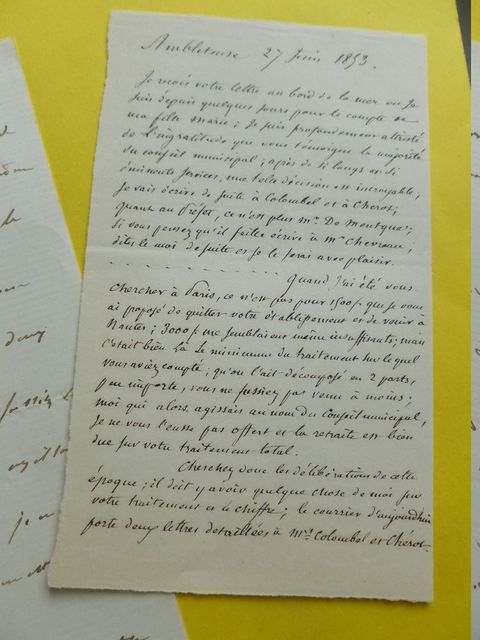 Ambleteuse 27 Juin 1853.
Je reçois votre lettre au bord de la mer où je
suis depuis quelques jours pour le compte de
ma fille Marie; Je suis profondément attristé
de l'ingratitude que vous témoigne la majorité
du conseil municipal; après de si longs et si
éminents services, une telle décision est incroyable,
Je vais écrire de suite à Colombel et à Chérot;
quant au Préfet, ce n'est plus Mr. De Mentque;
Si vous pensez qu'il faille écrire à Mr Chevreau;
dites le moi de suite et je le ferai avec plaisir.
Quand j'ai été vous
chercher à Paris, ce n'est pas pour 1500 f. que je vous
ai proposé de quitter votre établissement et de venir à
Nantes; 3000 f me semblaient même insuffisants; mais
c'était bien là le minimum du traitement sur lequel
vous aviez compté; qu'on l'ait décomposé en 2 parts,
peu importe, vous ne fussiez pas venu à moins;
moi qui alors, agissais au nom du Conseil municipal,
Je ne vous l'eusse pas offert et la retraite est bien
due sur votre traitement total.
Cherchez donc les délibérations de cette
époque; il doit y avoir quelque chose de moi sur
votre traitement et le chiffre; le courrier d'aujourdhui
porte deux lettres détaillées à Mrs Colombel et Chérot.